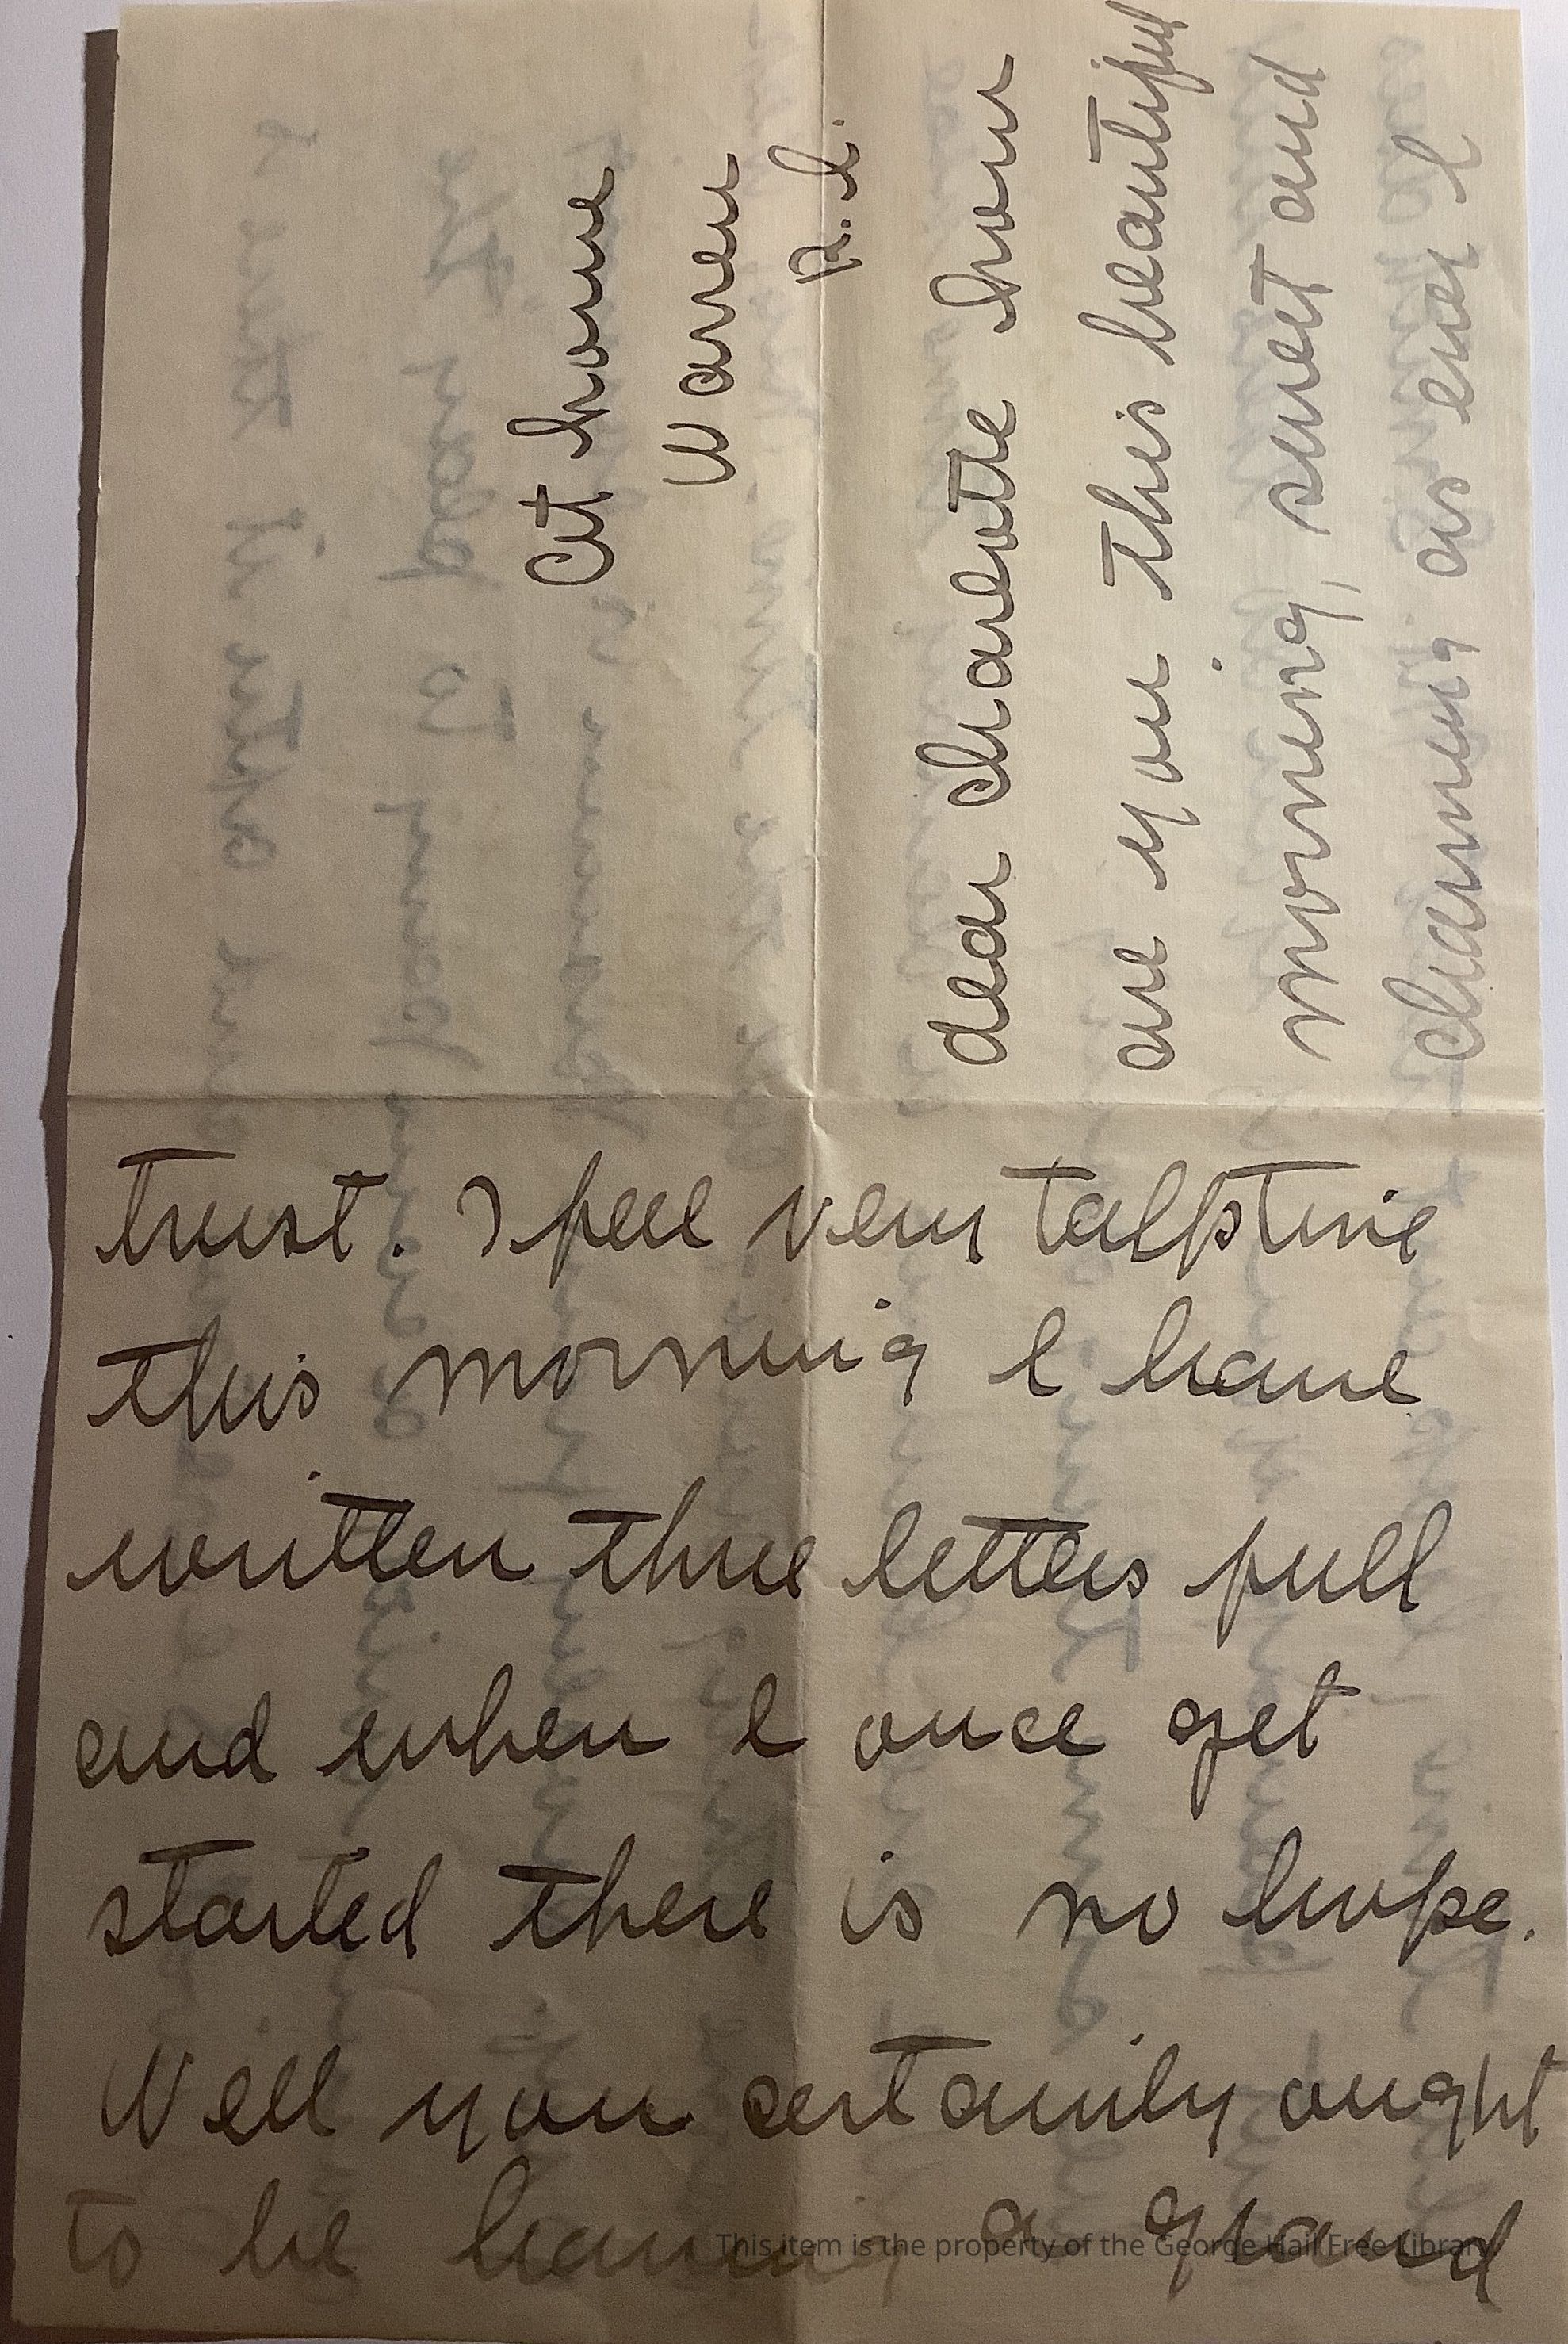 At home
Warren
R.I.
dear charlotte how
are you this beautiful
morning, sweet and
charming as ever I
trust. I feel very talktive
this morning I have
written three letters full
and when I once get
started there is no hope.
Well you certainly ought
to be having a grand
This item is the property of the George Hail Free Library